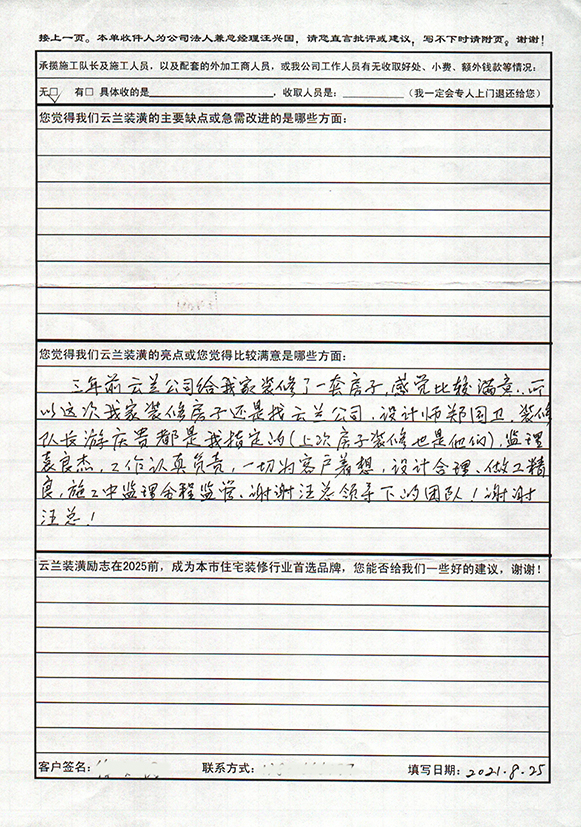 接上一页。本单收件人为公司法人兼总经理汪兴国,请您直言批评或建议,写不下时请附页。谢谢!
承揽施工队长及施工人员,以及配套的外加工商人员,或我公司工作人员有无收取好处、小费、额外钱款等情况:
无□ 有□ 具体收的是 ,收取人员是: (我一定会专人上门退还给您)
您觉得我们云兰装潢的主要缺点或急需改进的是哪些方面:
您觉得我们云兰装潢的亮点或您觉得比较满意是哪些方面:
三年前云兰公司给我家装修了一套房子,感觉比较满意.所
以这次我家装修房子还是找云兰公司.设计师郑国卫,装修
队长游庆贵都是我指定的(上次房子装修也是他们),监理
袁良杰,工作认真负责,一切为客户着想,设计合理、做工精
良,施工中监理全程监管、谢谢汪总领导下的团队!谢谢
汪总!
云兰装潢励志在2025前,成为本市住宅装修行业首选品牌,您能否给我们一些好的建议,谢谢!
客户签名: 联系方式: 填写日期:2021.8.25